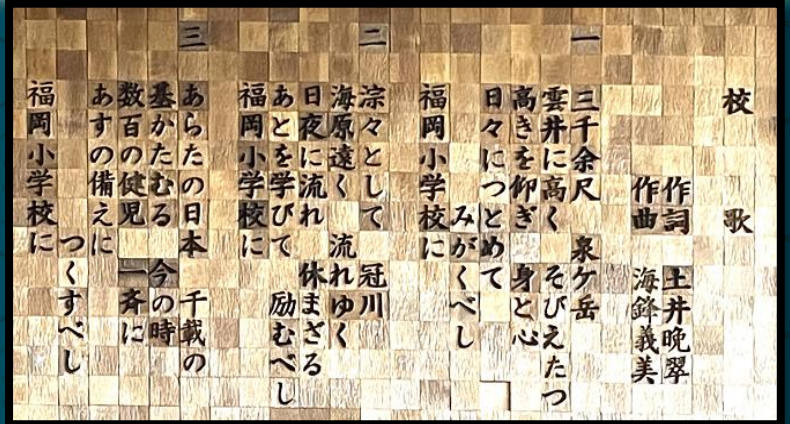 校歌
作詞 土井晩翠
作曲 海鋒義美
一
三千余尺 泉ケ岳
雲井に高く そびえたつ
高きを仰ぎ 身と心
日々につとめて
みがくべし
福岡小学校に
二
淙々として 冠川
海原遠く 流れゆく
日夜に流れ 休まざる
あとを学びて 励むべし
福岡小学校に
三
あらたの日本 千載の
基かたむる 今の時
数百の健児 一斉に
あすの備えに
つくすべし
福岡小学校に